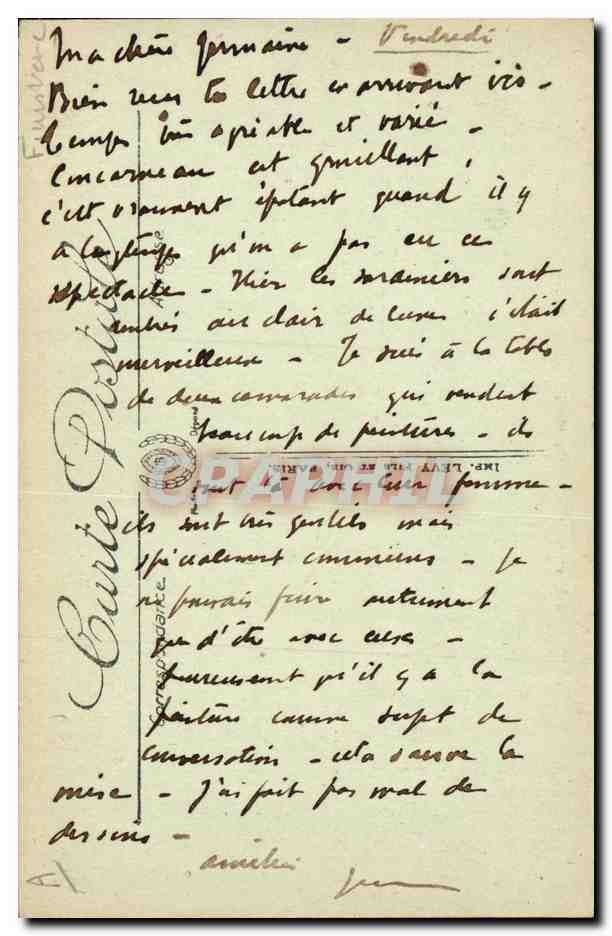 Ma chère Germaine - Vendredi
Bien reçu ta lettre en arrivant ici -
Temps très agréable et varié -
Concarneau est grouillant,
c'est vraiment épatant quand il y
a longtemps qu'on a pas eu ce
spectacle - Hier les sardiniers sont
rentrés au clair de lune c'était
merveilleux - Je suis à la table
de deux camarades qui vendent
beaucoup de peintures - ils
sont là avec leur femme -
ils sont très gentils mais
spécialement communs - je
ne pouvais faire autrement
que d'être avec eux -
heureusement qu'il y a la
peinture comme sujet de
conversation - cela sauve la
mise - J'ai fait pas mal de
dessins -
amitiés
Finistère
Carte Postale
Correspondance
Adresse
IMP. LÉVY FILS ET CIE, PARIS.
CPAPHIL